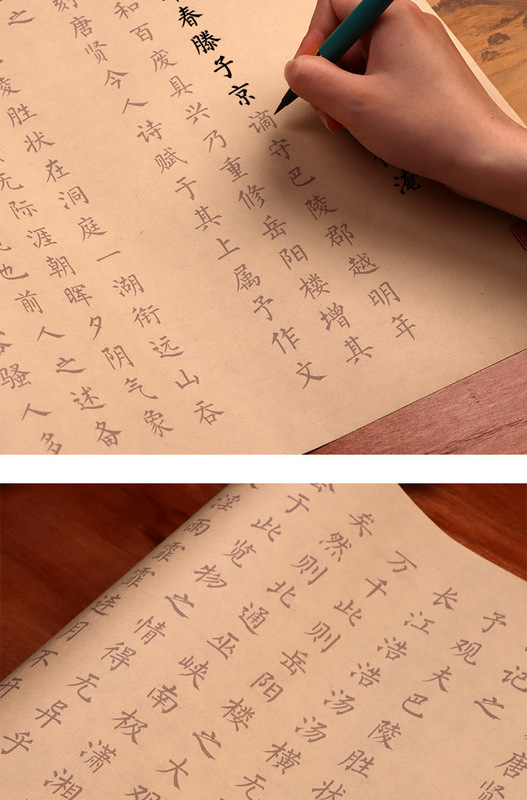 淹
春滕子京谪守巴陵郡越明年
和百废具兴乃重修岳阳楼增其
刻唐贤今人诗赋于其上属予作文
之
陵胜状在洞庭一湖衔远山吞
无际涯朝晖夕阴气象
也前人之述备
骚人多
唐贤
记之
予观夫巴陵胜状
长江浩浩汤汤横无
万千此则岳阳楼之大观
矣然则北通巫峡南极潇湘
于此览物之情得无异乎
淫雨霏霏连月不开